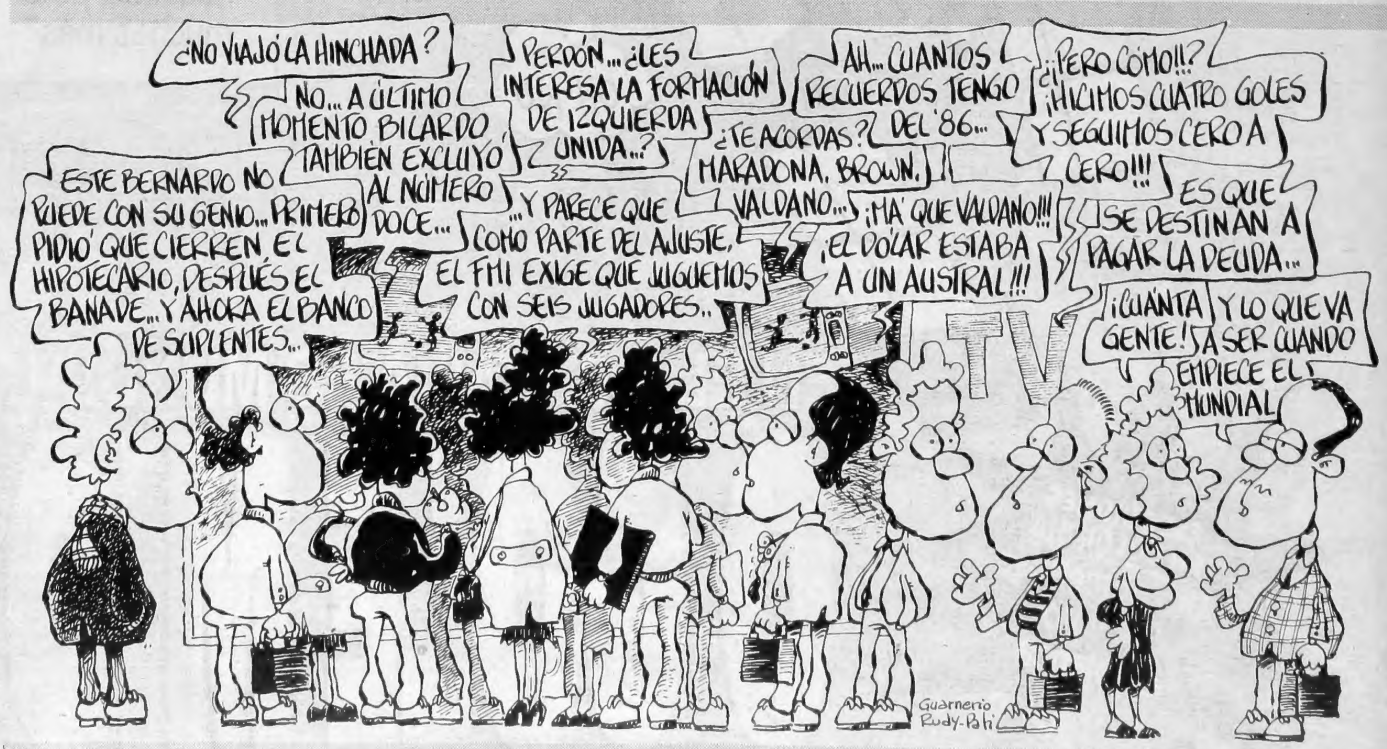 ¿NO VIAJÓ LA HINCHADA?
NO... A ÚLTIMO
MOMENTO BILARDO
TAMBIÉN EXCLUYÓ
AL NÚMERO
DOCE...
ESTE BERNARDO NO
PUEDE CON SU GENIO... PRIMERO
PIDIÓ QUE CIERREN EL
HIPOTECARIO, DESPUÉS EL
BANADE... Y AHORA EL BANCO
DE SUPLENTES...
PERDÓN... ¿LES
INTERESA LA FORMACIÓN
DE IZQUIERDA
UNIDA...?
...Y PARECE QUE
COMO PARTE DEL AJUSTE,
EL FMI EXIGE QUE JUGUEMOS
CON SEIS JUGADORES..
AH... CUANTOS
RECUERDOS TENGO
DEL '86...
¿TE ACORDAS?
MARADONA, BROWN,
VALDANO...
¡MA' QUE VALDANO!!!
¡EL DÓLAR ESTABA
A UN AUSTRAL!!!
¿¡PERO CÓMO!!?
¡HICIMOS CUATRO GOLES
Y SEGUIMOS CERO A
CERO!!!
ES QUE
SE DESTINAN A
PAGAR LA DEUDA...
¡CUÁNTA
GENTE!
Y LO QUE VA
A SER CUANDO
EMPIECE EL
MUNDIAL
TV
Guarnerio
Rudy-Pati